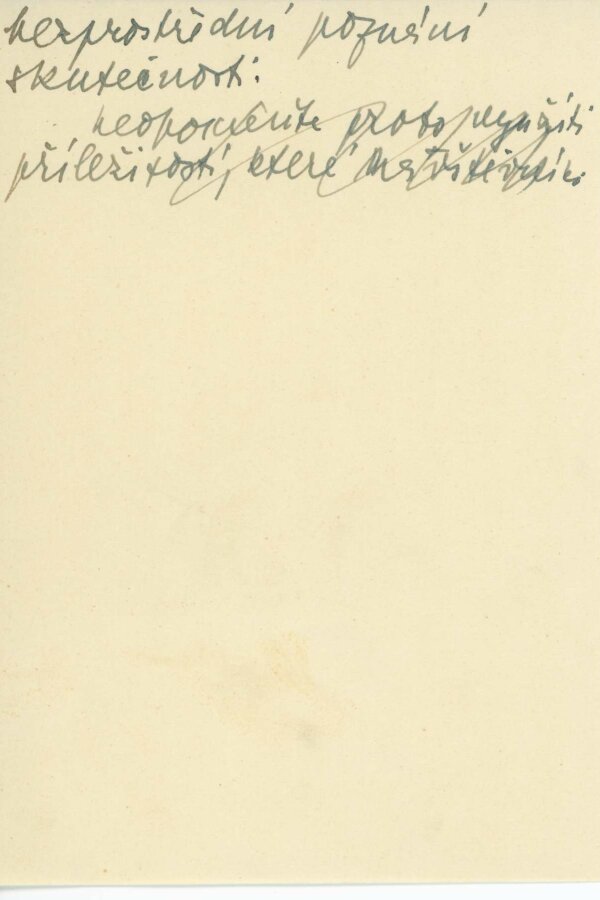 bezprostřední poznání
skutečnosti.
neopomeňte proto využíti
příležitosti, které